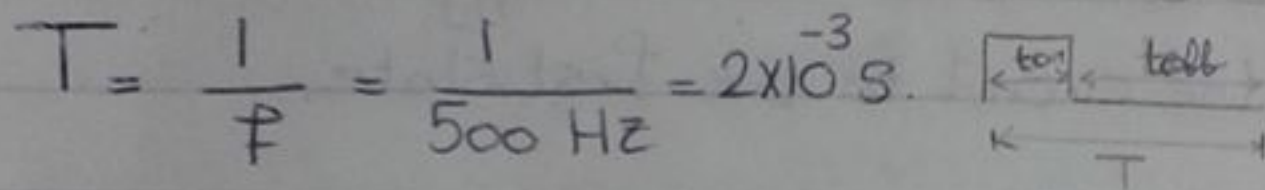 T = 1/f = 1/500 Hz = 2x10^-3 S.
ton toff
T